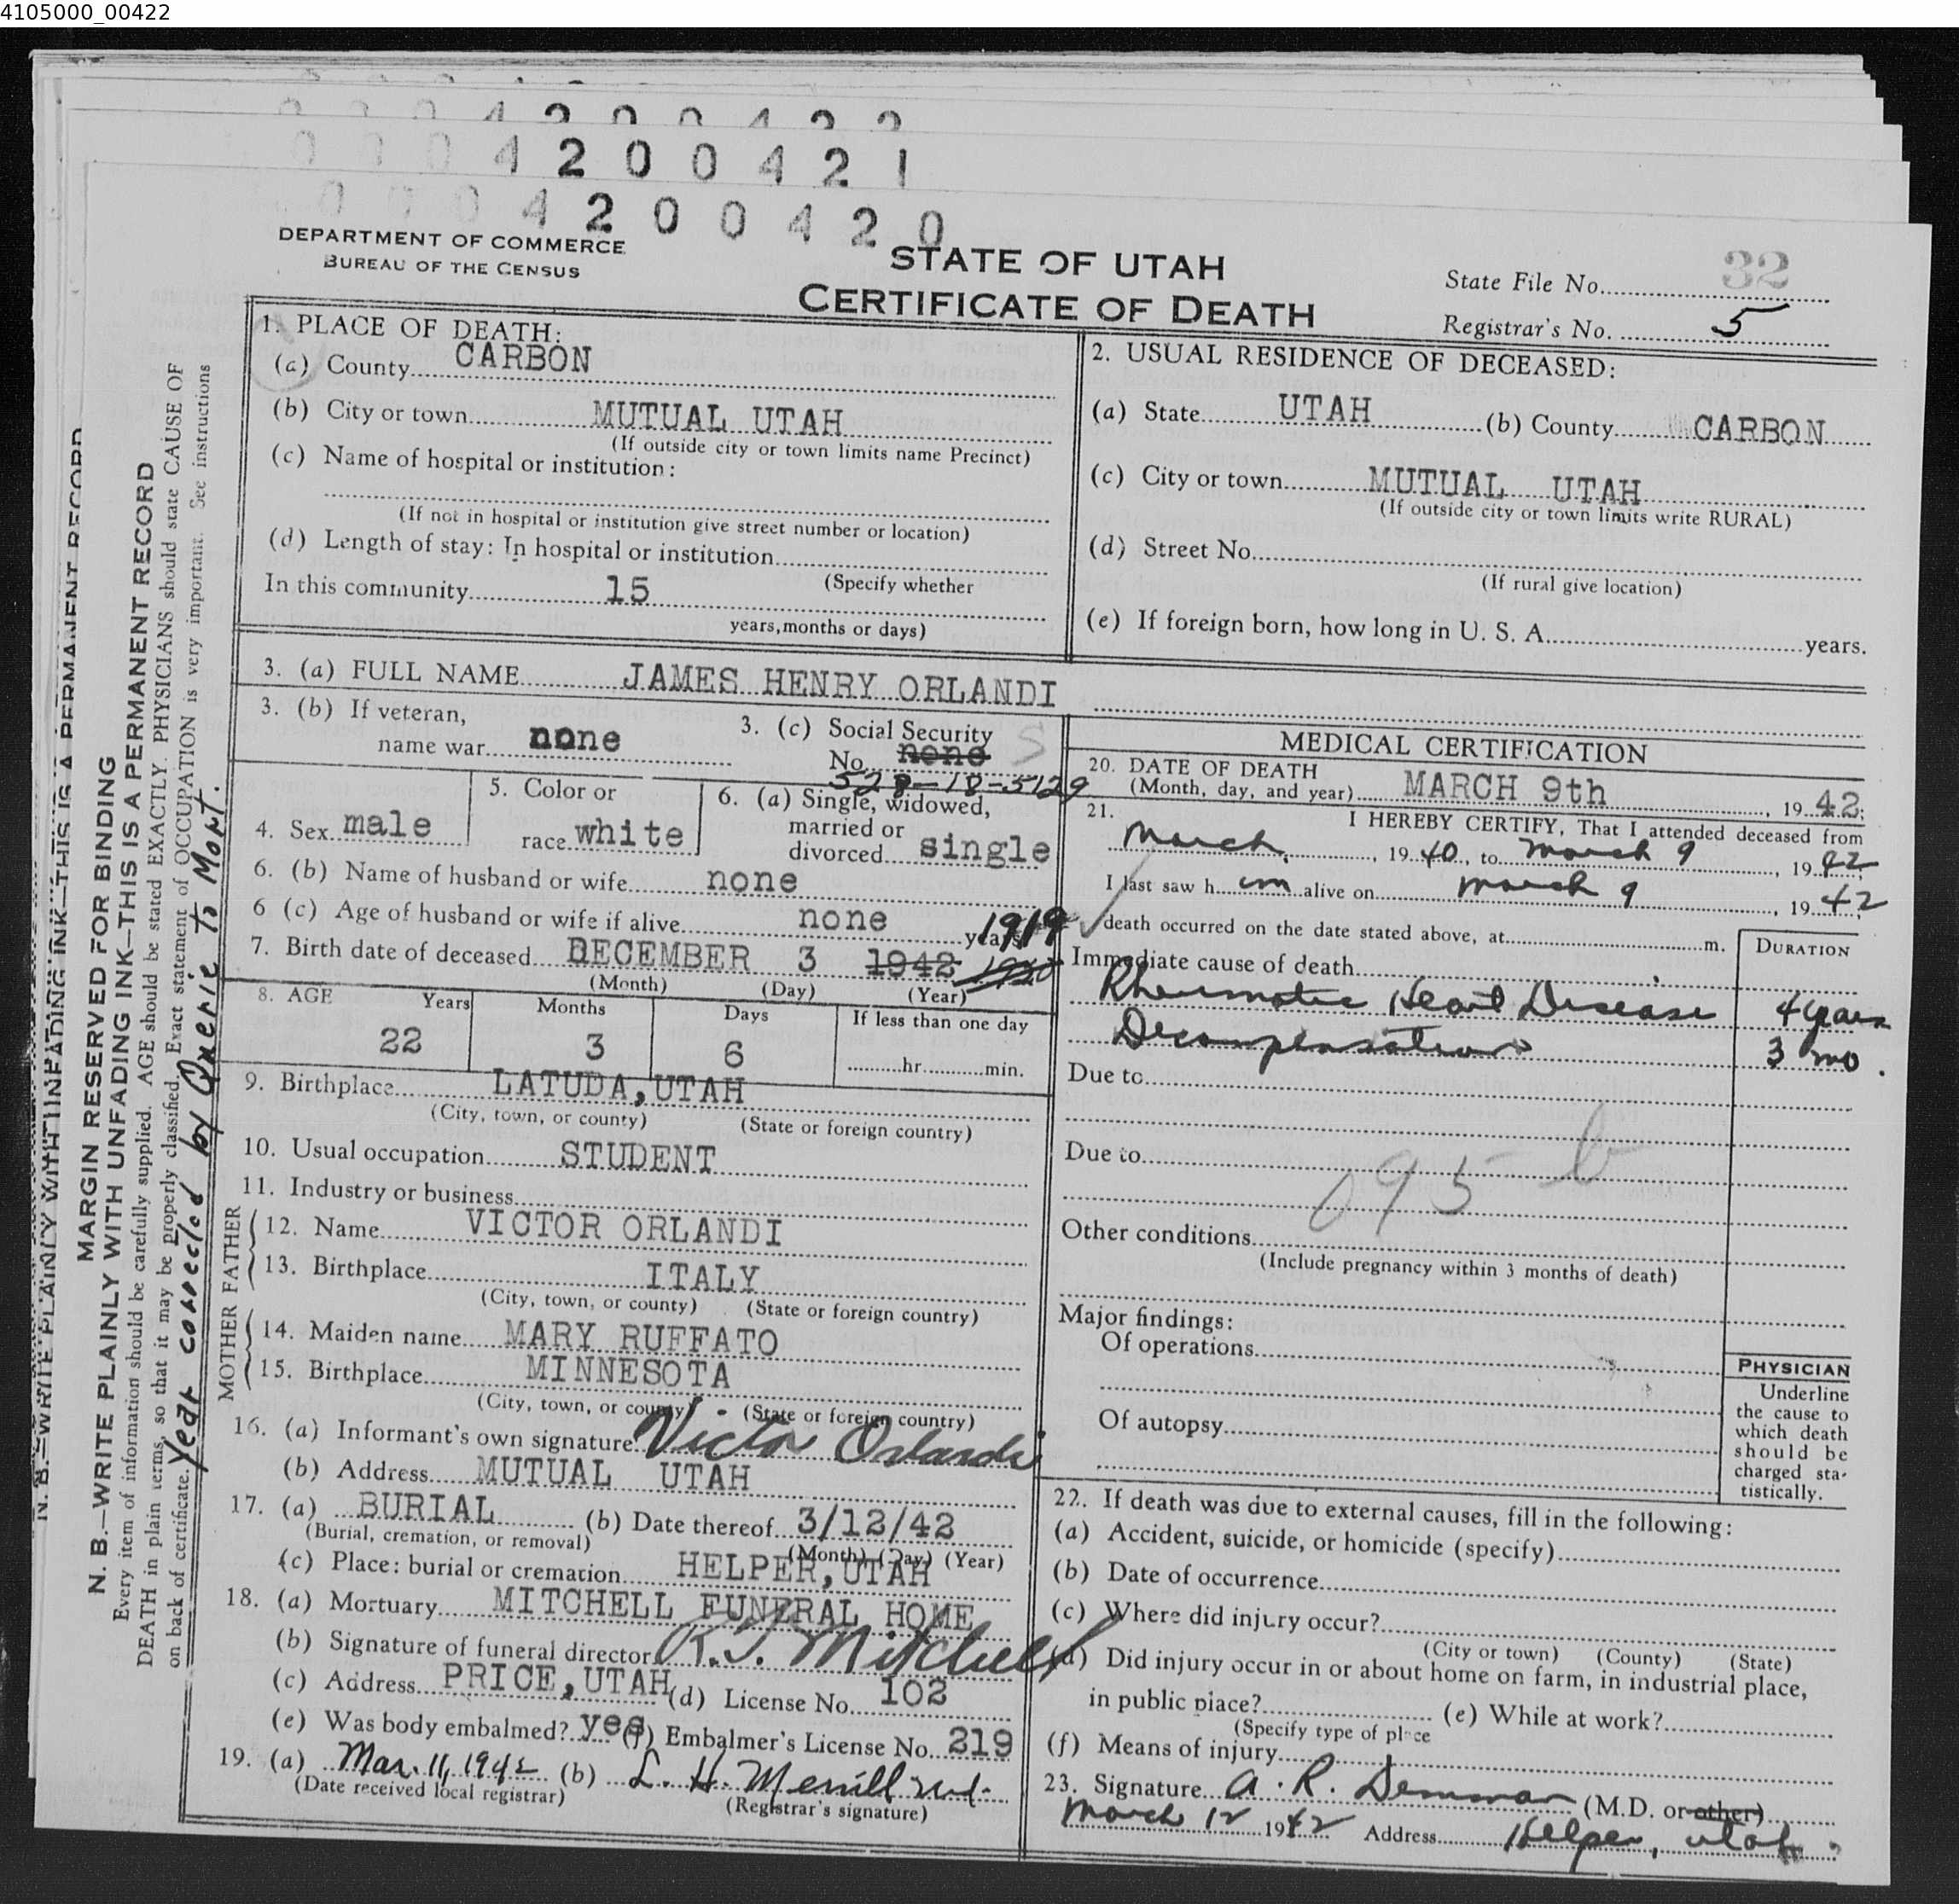 4105000_00422
4 2 0 0 4 2 2
0 0 0 4 2 0 0 4 2 1
0 0 0 4 2 0 0 4 2 0
DEPARTMENT OF COMMERCE
BUREAU OF THE CENSUS
STATE OF UTAH
CERTIFICATE OF DEATH
State File No. 32
Registrar's No. 5
N. B.—WRITE PLAINLY WITH UNFADING INK—THIS IS A PERMANENT RECORD
MARGIN RESERVED FOR BINDING
N. B.—WRITE PLAINLY WITH UNFADING INK—THIS IS A PERMANENT RECORD
Every item of information should be carefully supplied. AGE should be stated EXACTLY. PHYSICIANS should state CAUSE OF
DEATH in plain terms, so that it may be properly classified. Exact statement of OCCUPATION is very important. See instructions
on back of certificate.
Year corrected by Querie to Mort.
1. PLACE OF DEATH:
(a) County CARBON
(b) City or town MUTUAL UTAH
(If outside city or town limits name Precinct)
(c) Name of hospital or institution:
(If not in hospital or institution give street number or location)
(d) Length of stay: In hospital or institution
(Specify whether
In this community 15
years, months or days)
2. USUAL RESIDENCE OF DECEASED:
(a) State UTAH (b) County CARBON
(c) City or town MUTUAL UTAH
(If outside city or town limits write RURAL)
(d) Street No.
(If rural give location)
(e) If foreign born, how long in U. S. A. years.
3. (a) FULL NAME JAMES HENRY ORLANDI
3. (b) If veteran,
name war none
3. (c) Social Security
No. none S
528-18-5129
4. Sex male
5. Color or
race white
6. (a) Single, widowed,
married or
divorced single
6. (b) Name of husband or wife none
6 (c) Age of husband or wife if alive none years
1919
7. Birth date of deceased DECEMBER 3 1942 1920
(Month) (Day) (Year)
8. AGE Years Months Days If less than one day
22 3 6 hr. min.
9. Birthplace LATUDA, UTAH
(City, town, or county) (State or foreign country)
10. Usual occupation STUDENT
11. Industry or business
FATHER
12. Name VICTOR ORLANDI
13. Birthplace ITALY
(City, town, or county) (State or foreign country)
MOTHER
14. Maiden name MARY RUFFATO
15. Birthplace MINNESOTA
(City, town, or county) (State or foreign country)
16. (a) Informant's own signature Victor Orlandi
(b) Address MUTUAL UTAH
17. (a) BURIAL (b) Date thereof 3/12/42
(Burial, cremation, or removal) (Month) (Day) (Year)
(c) Place: burial or cremation HELPER, UTAH
18. (a) Mortuary MITCHELL FUNERAL HOME
(b) Signature of funeral director R. T. Mitchell
(c) Address PRICE, UTAH (d) License No. 102
(e) Was body embalmed? yes (f) Embalmer's License No. 219
19. (a) Mar. 11, 1942 (b) L. H. Merrill md.
(Date received local registrar) (Registrar's signature)
MEDICAL CERTIFICATION
20. DATE OF DEATH
(Month, day, and year) MARCH 9th, 1942;
21. I HEREBY CERTIFY, That I attended deceased from
March, 1940, to March 9, 1942
I last saw h im alive on March 9, 1942
death occurred on the date stated above, at m.
DURATION
Immediate cause of death
Rheumatic Heart Disease 4 years
Decompensation 3 mo.
Due to
Due to
095-b
Other conditions
(Include pregnancy within 3 months of death)
Major findings:
Of operations
Of autopsy
PHYSICIAN
Underline
the cause to
which death
should be
charged sta-
tistically.
22. If death was due to external causes, fill in the following:
(a) Accident, suicide, or homicide (specify)
(b) Date of occurrence
(c) Where did injury occur?
(City or town) (County) (State)
(d) Did injury occur in or about home on farm, in industrial place,
in public place? (e) While at work?
(Specify type of place
(f) Means of injury
23. Signature A. R. Demman (M.D. or other)
March 12 1942 Address Helper, Utah.